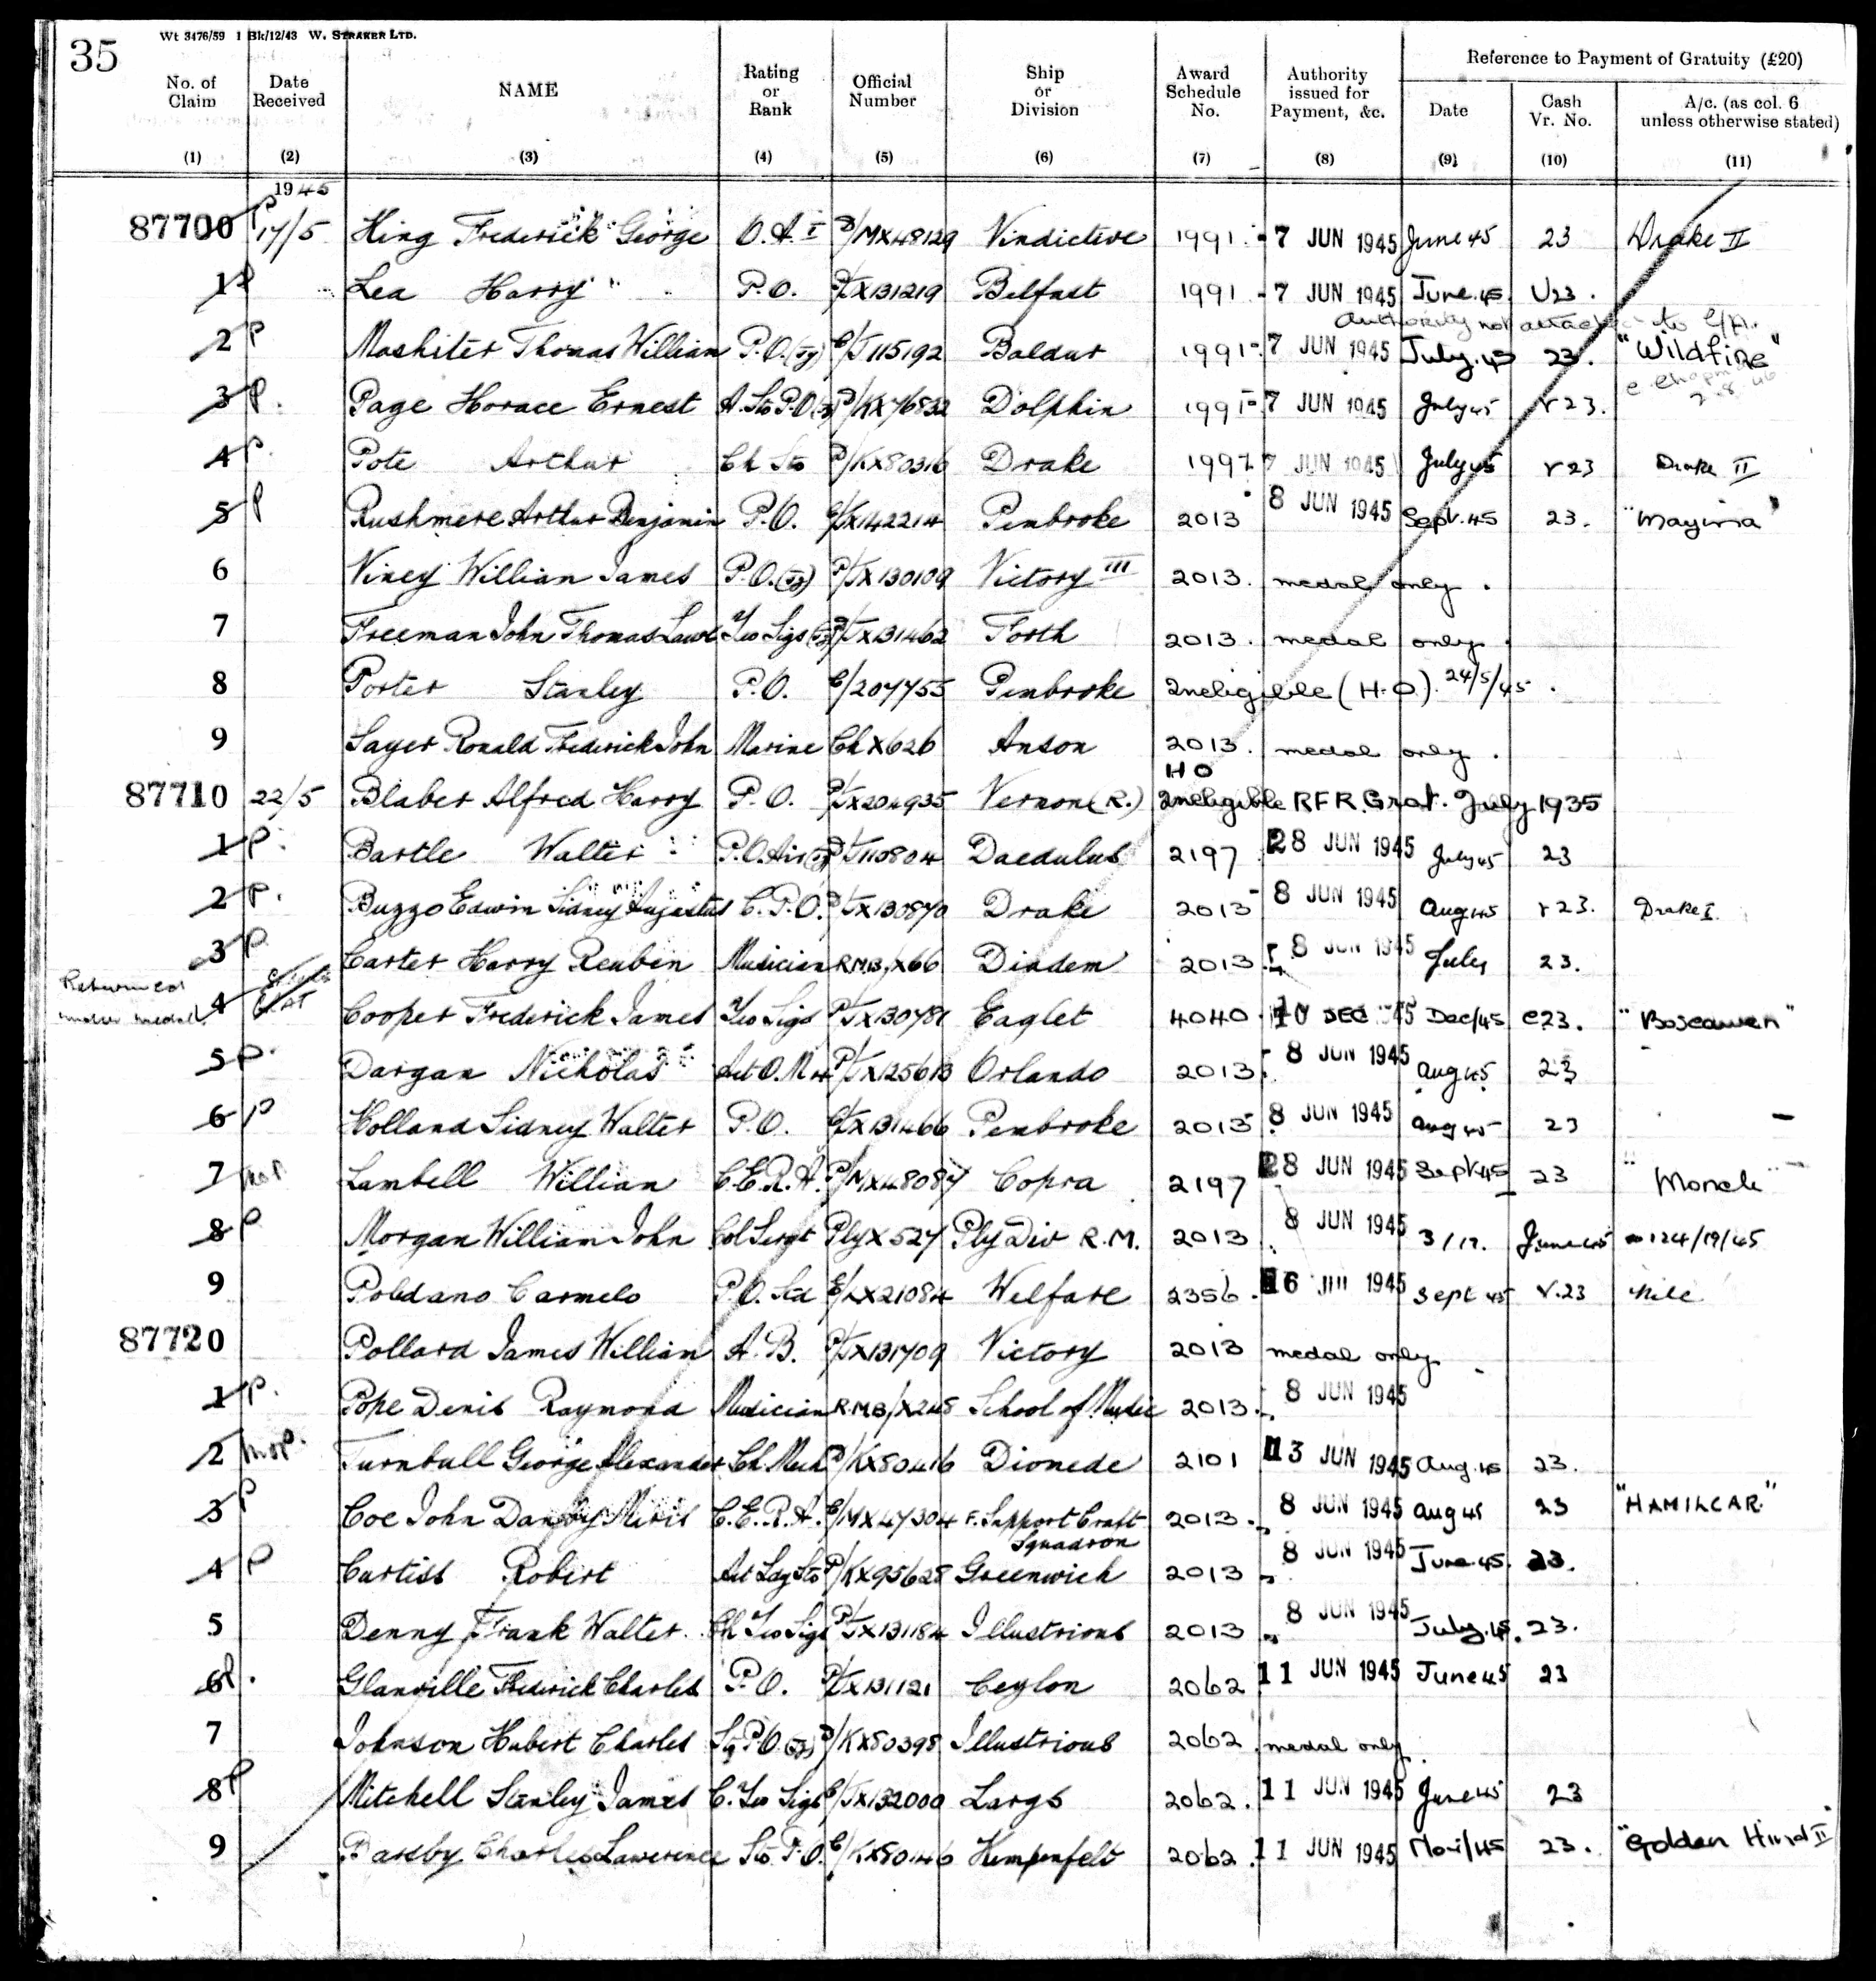 35 Wt 3476/59 1 Bk/12/43 W. STRAKER LTD.
Reference to Payment of Gratuity (£20)
No. of Claim Date Received NAME Rating or Rank Official Number Ship or Division Award Schedule No. Authority issued for Payment, &c. Date Cash Vr. No. A/c. (as col. 6 unless otherwise stated)
(1) (2) (3) (4) (5) (6) (7) (8) (9) (10) (11)
1945
87700 P 17/5 King Frederick George O.A. I P/MX48129 Vindictive 1991 -7 JUN 1945 June 45 23 Drake II
1 P Lea Harry P.O. P/JX131219 Belfast 1991 -7 JUN 1945 June.45 V23.
Authority not attached to C/A.
2 P Mashiter Thomas William P.O.(Ty) C/J115192 Baldur 1991 -7 JUN 1945 July.45 23. "Wildfire"
3 P. Page Horace Ernest A.Sto P.O. P/KX76832 Dolphin 1991 -7 JUN 1945 July 45 V23.
4 P. Pote Arthur Ch Sto P/KX80316 Drake 1997 7 JUN 1945 July 45 V23 Drake II
5 P Rushmere Arthur Benjamin P.O. C/JX142214 Pembroke 2013 8 JUN 1945 Sept.45 23. "Mayina"
6 Viney William James P.O.(Ty) P/JX130109 Victory III 2013. medal only.
7 Freeman John Thomas Yeo Sigs P/JX131462 Forth 2013. medal only.
8 Porter Stanley P.O. C/207755 Pembroke Ineligible (H.O). 24/5/45.
9 Sayer Ronald Frederick John Marine Ch X626 Anson 2013. medal only.
HO
87710 22/5 Blaber Alfred Harry P.O. P/JX204935 Vernon (R.) Ineligible RFR Grat. July 1935
1 P. Bartle Walter P.O. Air J110804 Daedulus 2197 28 JUN 1945 July 45 23
2 P. Buzzo Edwin Sidney Augustus C.P.O. P/JX130870 Drake 2013 - 8 JUN 1945 Aug 45 V23. Drake I.
3 P Carter Harry Reuben Musician RMB/X66 Diadem 2013 8 JUN 1945 July 23.
Returned under medal 4 Cooper Frederick James Yeo Sigs P/JX130781 Eaglet 4040 10 DEC 45 Dec/45 C23. "Boscawen"
5 P. Dargan Nicholas Act O.M 4 P/JX125613 Orlando 2013 8 JUN 1945 Aug 45 23
6 P Holland Sidney Walter P.O. C/JX131466 Pembroke 2013 8 JUN 1945 Aug 45 23 -
7 Lambell William C.E.R.A. P/MX48087 Copra 2197 28 JUN 1945 Sept 45 23 "Monck"
8 P Morgan William John Col Sergt Ply X 527 Ply Div R.M. 2013 8 JUN 1945 3/17. June 45 124/19/45
9 Poldano Carmelo P.O. Std E/LX21084 Welfare 2356 1945 Sept 45 V.23 Nile
87720 Pollard James William A.B. P/JX131709 Victory 2013 medal only.
1 P. Pope Denis Raymond Musician RMB/X248 School of Music 2013 8 JUN 1945
2 Turnbull George Alexander Ch Mech P/KX80416 Diomede 2101 13 JUN 1945 Aug.45 23.
3 P Coe John C.E.R.A. C/MX47304 F. Support Craft Squadron 2013. 8 JUN 1945 Aug 45 23 "HAMILCAR."
4 P Curtiss Robert Act Ldg Sto P/KX95628 Greenwich 2013 8 JUN 1945 June.45. 23.
5 Denny Frank Walter Ch Yeo Sigs P/JX131184 Illustrious 2013 8 JUN 1945 July.45. 23.
6 P. Glanville Frederick Charles P.O. P/JX131121 Ceylon 2062 11 JUN 1945 June 45 23
7 Johnson Hubert Charles P/KX80398 Illustrious 2062 medal only.
8 P Mitchell Stanley James C. Yeo Sigs C/JX132000 Largs 2062. 11 JUN 1945 June 45 23
9 Charles Lawerence Sto P.O. C/KX80146 Kempenfelt 2062. 11 JUN 1945 Nov/45 23. "Golden Hind II"